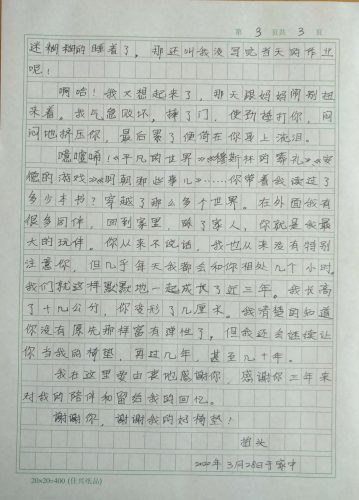 第 3 页共 3 页
迷糊糊的睡着了，那还叫我没写完当天的作业
呢！
啊哈！我又想起来了，那天跟妈妈闹别扭
来着。我气急败坏，摔了门，使劲捶打你，闷
闷地挤压你，最后累了便倚在你身上流泪。
嘿嘿嘿！《平凡的世界》《穆斯林的葬礼》《安
德的游戏》《明朝那些事儿》……你带着我读过了
多少本书？穿越了那么多个世界。在外面我有
很多同伴，回到家里，除了家人，你就是我最
大的玩伴。你从来不说话，我也从来没有特别
注意你，但几乎每天我都会和你相处几个小时。
我们就这样默默地一起成长了近三年。我长高
了十几公分，你变形了几厘米。我清楚的知道
你没有原先那样富有弹性了，但我还会继续让
你当我的椅垫，再过几年，甚至几十年。
我在这里要由衷地感谢你，感谢你三年来
对我的陪伴和留给我的回忆。
谢谢你，谢谢我的好椅垫！
2020年3月28日于家中
20×20=400